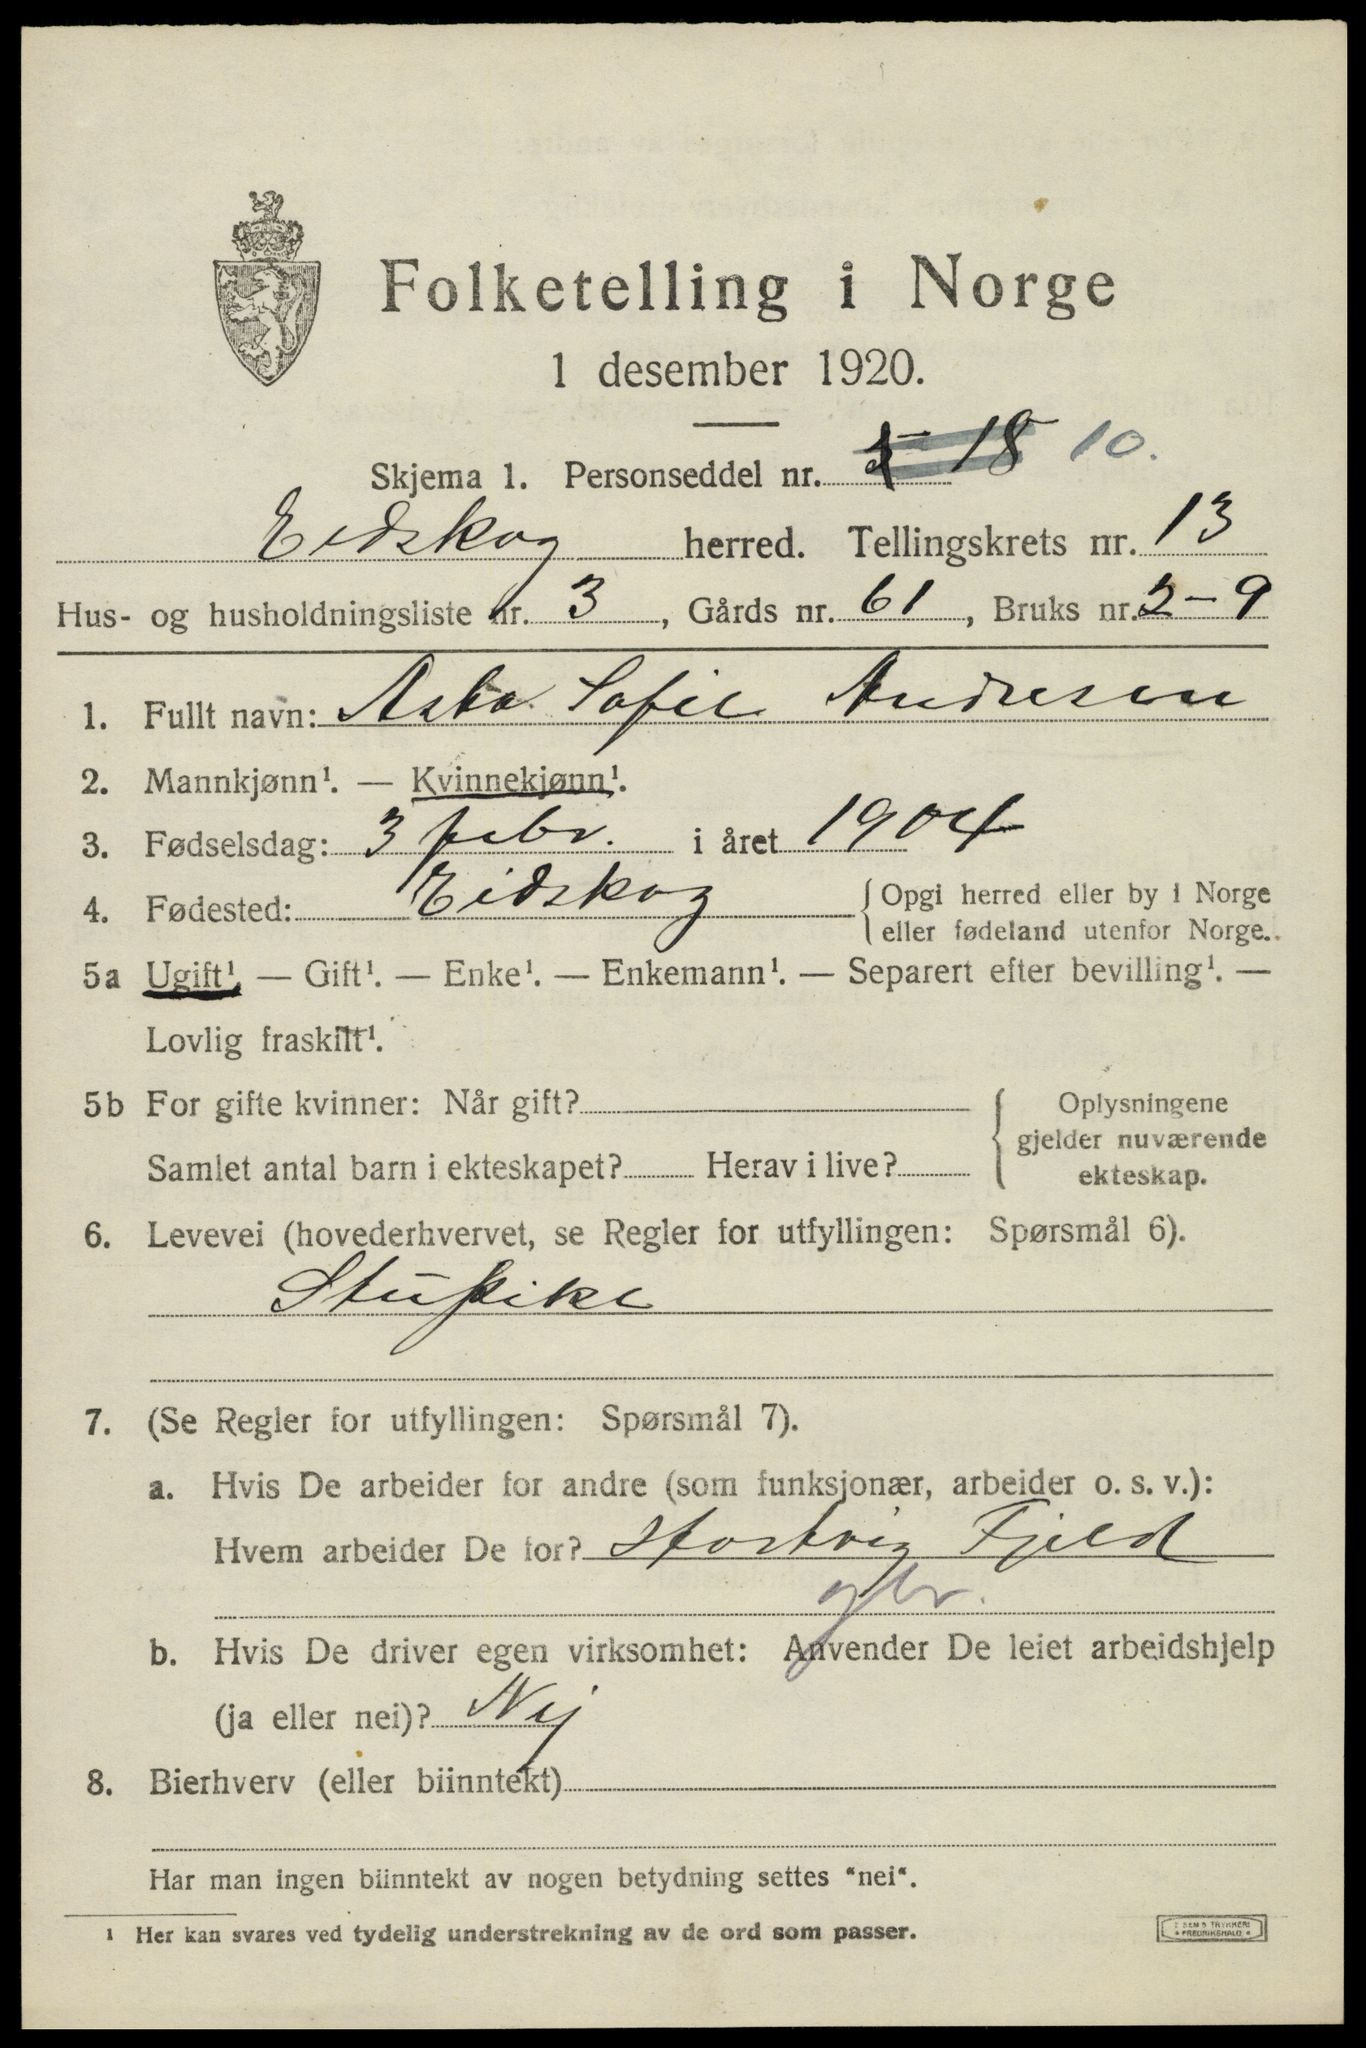 Folketelling i Norge
1 desember 1920.
Skjema 1. Personseddel nr. 18 10.
Eidskog herred. Tellingskrets nr. 13
Hus- og husholdningsliste nr. 3, Gårds nr. 61, Bruks nr. 2-9
1. Fullt navn: Asta Sofie Andresen
2. Mannkjønn¹. — Kvinnekjønn¹.
3. Fødselsdag: 3 febr. i året 1904
4. Fødested: Eidskog { Opgi herred eller by i Norge
eller fødeland utenfor Norge.
5a Ugift¹. — Gift¹. — Enke¹. — Enkemann¹. — Separert efter bevilling¹. —
Lovlig fraskilt¹.
5b For gifte kvinner: Når gift? { Oplysningene
gjelder nuværende
Samlet antal barn i ekteskapet? Herav i live? ekteskap.
6. Levevei (hovederhvervet, se Regler for utfyllingen: Spørsmål 6).
Stupike
7. (Se Regler for utfyllingen: Spørsmål 7).
a. Hvis De arbeider for andre (som funksjonær, arbeider o. s. v.):
Hvem arbeider De for? Hartvig Fjeld
gbr.
b. Hvis De driver egen virksomhet: Anvender De leiet arbeidshjelp
(ja eller nei)? Nej
8. Bierhverv (eller biinntekt)
Har man ingen biinntekt av nogen betydning settes "nei".
¹ Her kan svares ved tydelig understrekning av de ord som passer.